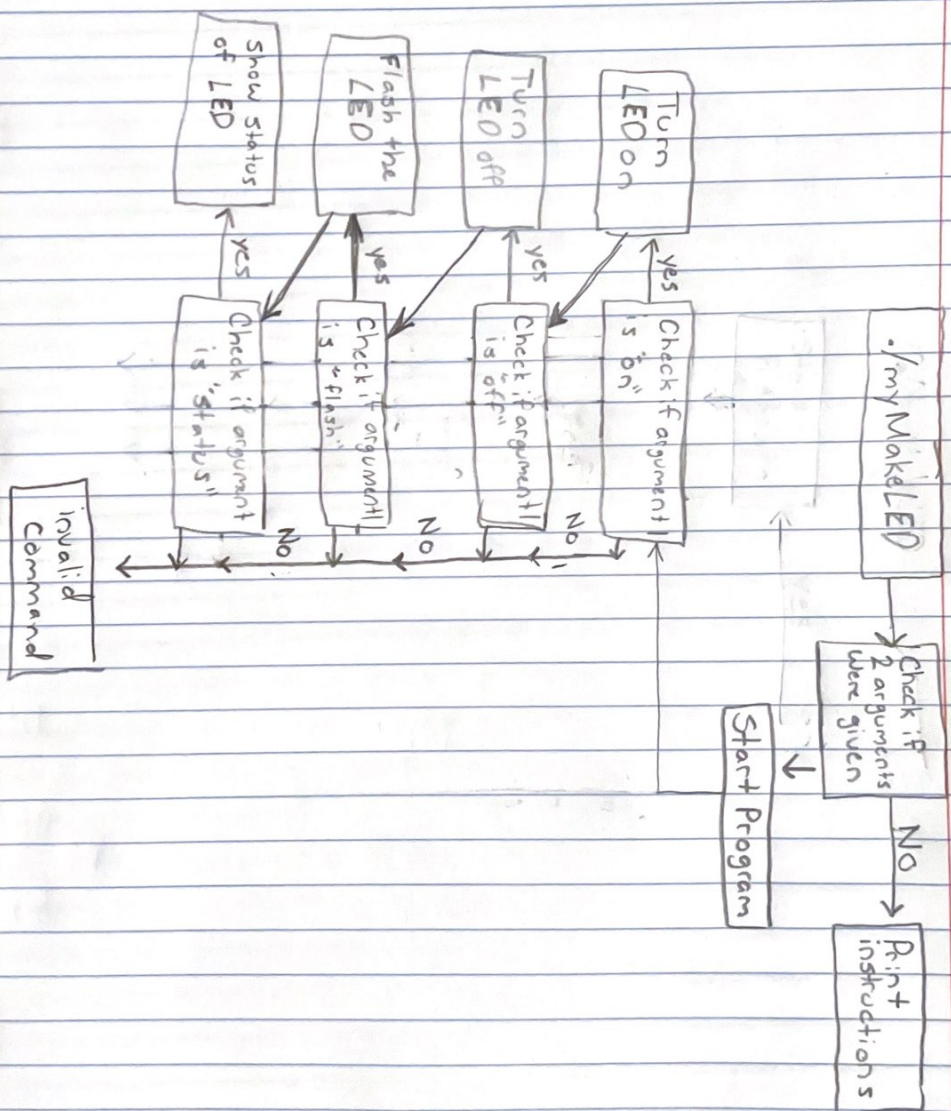 ./myMakeLED
Check if
2 arguments
were given
No
Print
instructions
Start Program
Check if argument
is "on"
yes
Turn
LED on
No
Check if argument
is "off"
yes
Turn
LED off
No
Check if argument
is "flash"
yes
Flash the
LED
No
Check if argument
is "status"
yes
Show status
of LED
invalid
command